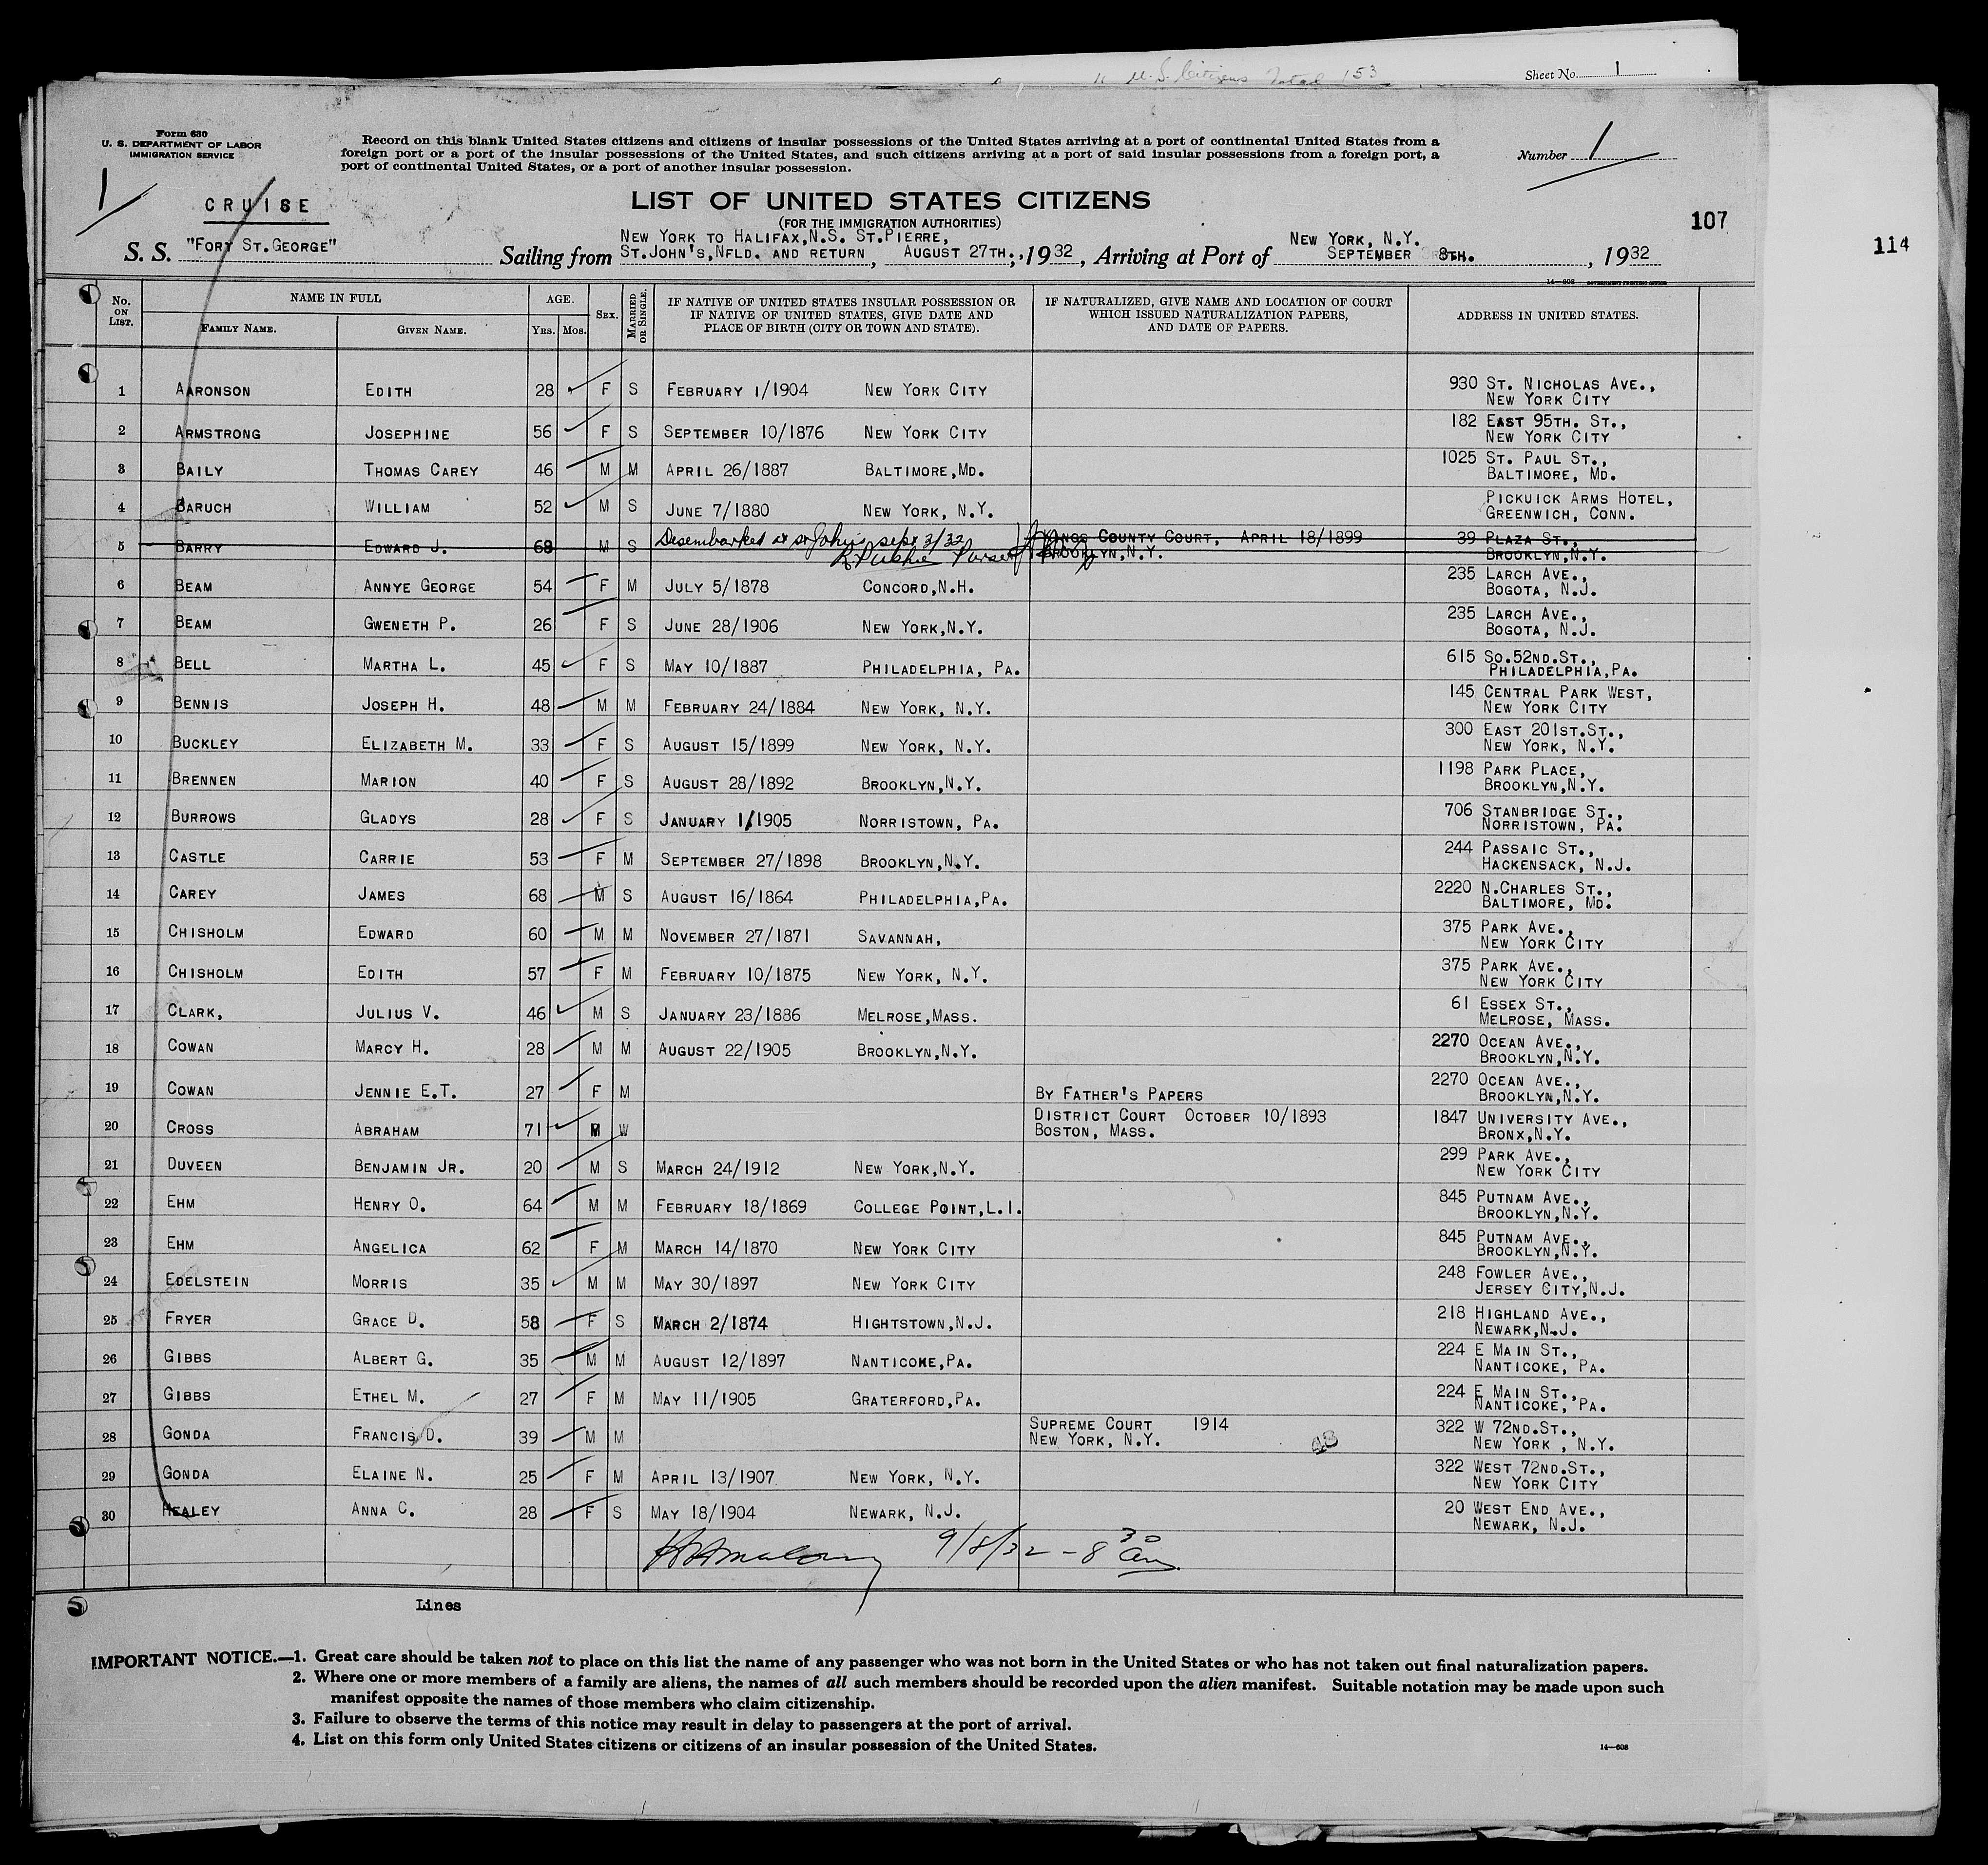 U. S. Citizens Total 153
Sheet No. 1
Form 630
U. S. DEPARTMENT OF LABOR
IMMIGRATION SERVICE
Record on this blank United States citizens and citizens of insular possessions of the United States arriving at a port of continental United States from a
foreign port or a port of the insular possessions of the United States, and such citizens arriving at a port of said insular possessions from a foreign port, a
port of continental United States, or a port of another insular possession.
Number 1
1
CRUISE
LIST OF UNITED STATES CITIZENS
(FOR THE IMMIGRATION AUTHORITIES)
107
114
S. S. "FORT ST.GEORGE" Sailing from NEW YORK TO HALIFAX,N.S. ST.PIERRE,
ST.JOHN'S,NFLD. AND RETURN, AUGUST 27TH; 1932, Arriving at Port of NEW YORK, N.Y.
SEPTEMBER 8TH. , 1932
14—608 GOVERNMENT PRINTING OFFICE
No. ON LIST. NAME IN FULL FAMILY NAME. GIVEN NAME. AGE. YRS. MOS. SEX. MARRIED OR SINGLE.
IF NATIVE OF UNITED STATES INSULAR POSSESSION OR
IF NATIVE OF UNITED STATES, GIVE DATE AND
PLACE OF BIRTH (CITY OR TOWN AND STATE).
IF NATURALIZED, GIVE NAME AND LOCATION OF COURT
WHICH ISSUED NATURALIZATION PAPERS,
AND DATE OF PAPERS.
ADDRESS IN UNITED STATES.
1 AARONSON EDITH 28 F S FEBRUARY 1/1904 NEW YORK CITY 930 ST. NICHOLAS AVE.,
NEW YORK CITY
2 ARMSTRONG JOSEPHINE 56 F S SEPTEMBER 10/1876 NEW YORK CITY 182 EAST 95TH. ST.,
NEW YORK CITY
3 BAILY THOMAS CAREY 46 M M APRIL 26/1887 BALTIMORE,MD. 1025 ST. PAUL ST.,
BALTIMORE, MD.
4 BARUCH WILLIAM 52 M S JUNE 7/1880 NEW YORK, N.Y. PICKUICK ARMS HOTEL,
GREENWICH, CONN.
5 BARRY EDWARD J. 68 M S Desembarked at St John's Sept 3/32 KINGS COUNTY COURT, APRIL 18/1899 39 PLAZA ST.,
Purser BROOKLYN,N.Y. BROOKLYN,N.Y.
6 BEAM ANNYE GEORGE 54 F M JULY 5/1878 CONCORD,N.H. 235 LARCH AVE.,
BOGOTA, N.J.
7 BEAM GWENETH P. 26 F S JUNE 28/1906 NEW YORK,N.Y. 235 LARCH AVE.,
BOGOTA, N.J.
8 BELL MARTHA L. 45 F S MAY 10/1887 PHILADELPHIA, PA. 615 SO.52ND.ST.,
PHILADELPHIA,PA.
9 BENNIS JOSEPH H. 48 M M FEBRUARY 24/1884 NEW YORK, N.Y. 145 CENTRAL PARK WEST,
NEW YORK CITY
10 BUCKLEY ELIZABETH M. 33 F S AUGUST 15/1899 NEW YORK, N.Y. 300 EAST 201ST.ST.,
NEW YORK, N.Y.
11 BRENNEN MARION 40 F S AUGUST 28/1892 BROOKLYN,N.Y. 1198 PARK PLACE,
BROOKLYN,N.Y.
12 BURROWS GLADYS 28 F S JANUARY 1/1905 NORRISTOWN, PA. 706 STANBRIDGE ST.,
NORRISTOWN, PA.
13 CASTLE CARRIE 53 F M SEPTEMBER 27/1898 BROOKLYN,N.Y. 244 PASSAIC ST.,
HACKENSACK, N.J.
14 CAREY JAMES 68 M S AUGUST 16/1864 PHILADELPHIA,PA. 2220 N.CHARLES ST.,
BALTIMORE, MD.
15 CHISHOLM EDWARD 60 M M NOVEMBER 27/1871 SAVANNAH, 375 PARK AVE.,
NEW YORK CITY
16 CHISHOLM EDITH 57 F M FEBRUARY 10/1875 NEW YORK, N.Y. 375 PARK AVE.,
NEW YORK CITY
17 CLARK, JULIUS V. 46 M S JANUARY 23/1886 MELROSE,MASS. 61 ESSEX ST.,
MELROSE, MASS.
18 COWAN MARCY H. 28 M M AUGUST 22/1905 BROOKLYN,N.Y. 2270 OCEAN AVE.,
BROOKLYN,N.Y.
19 COWAN JENNIE E.T. 27 F M BY FATHER'S PAPERS 2270 OCEAN AVE.,
BROOKLYN,N.Y.
20 CROSS ABRAHAM 71 M W DISTRICT COURT OCTOBER 10/1893 1847 UNIVERSITY AVE.,
BOSTON, MASS. BRONX,N.Y.
21 DUVEEN BENJAMIN JR. 20 M S MARCH 24/1912 NEW YORK,N.Y. 299 PARK AVE.,
NEW YORK CITY
22 EHM HENRY O. 64 M M FEBRUARY 18/1869 COLLEGE POINT,L.I. 845 PUTNAM AVE.,
BROOKLYN,N.Y.
23 EHM ANGELICA 62 F M MARCH 14/1870 NEW YORK CITY 845 PUTNAM AVE.,
BROOKLYN,N.Y.
24 EDELSTEIN MORRIS 35 M M MAY 30/1897 NEW YORK CITY 248 FOWLER AVE.,
JERSEY CITY,N.J.
25 FRYER GRACE D. 58 F S MARCH 2/1874 HIGHTSTOWN,N.J. 218 HIGHLAND AVE.,
NEWARK,N.J.
26 GIBBS ALBERT G. 35 M M AUGUST 12/1897 NANTICOKE,PA. 224 E MAIN ST.,
NANTICOKE, PA.
27 GIBBS ETHEL M. 27 F M MAY 11/1905 GRATERFORD,PA. 224 E MAIN ST.,
NANTICOKE, PA.
28 GONDA FRANCIS D. 39 M M SUPREME COURT 1914 322 W 72ND.ST.,
NEW YORK, N.Y. 43 NEW YORK , N.Y.
29 GONDA ELAINE N. 25 F M APRIL 13/1907 NEW YORK, N.Y. 322 WEST 72ND.ST.,
NEW YORK CITY
30 HEALEY ANNA C. 28 F S MAY 18/1904 NEWARK, N.J. 20 WEST END AVE.,
NEWARK, N.J.
9/8/32 - 8 30 am
Lines
IMPORTANT NOTICE.—1. Great care should be taken not to place on this list the name of any passenger who was not born in the United States or who has not taken out final naturalization papers.
2. Where one or more members of a family are aliens, the names of all such members should be recorded upon the alien manifest. Suitable notation may be made upon such
manifest opposite the names of those members who claim citizenship.
3. Failure to observe the terms of this notice may result in delay to passengers at the port of arrival.
4. List on this form only United States citizens or citizens of an insular possession of the United States.
14—608